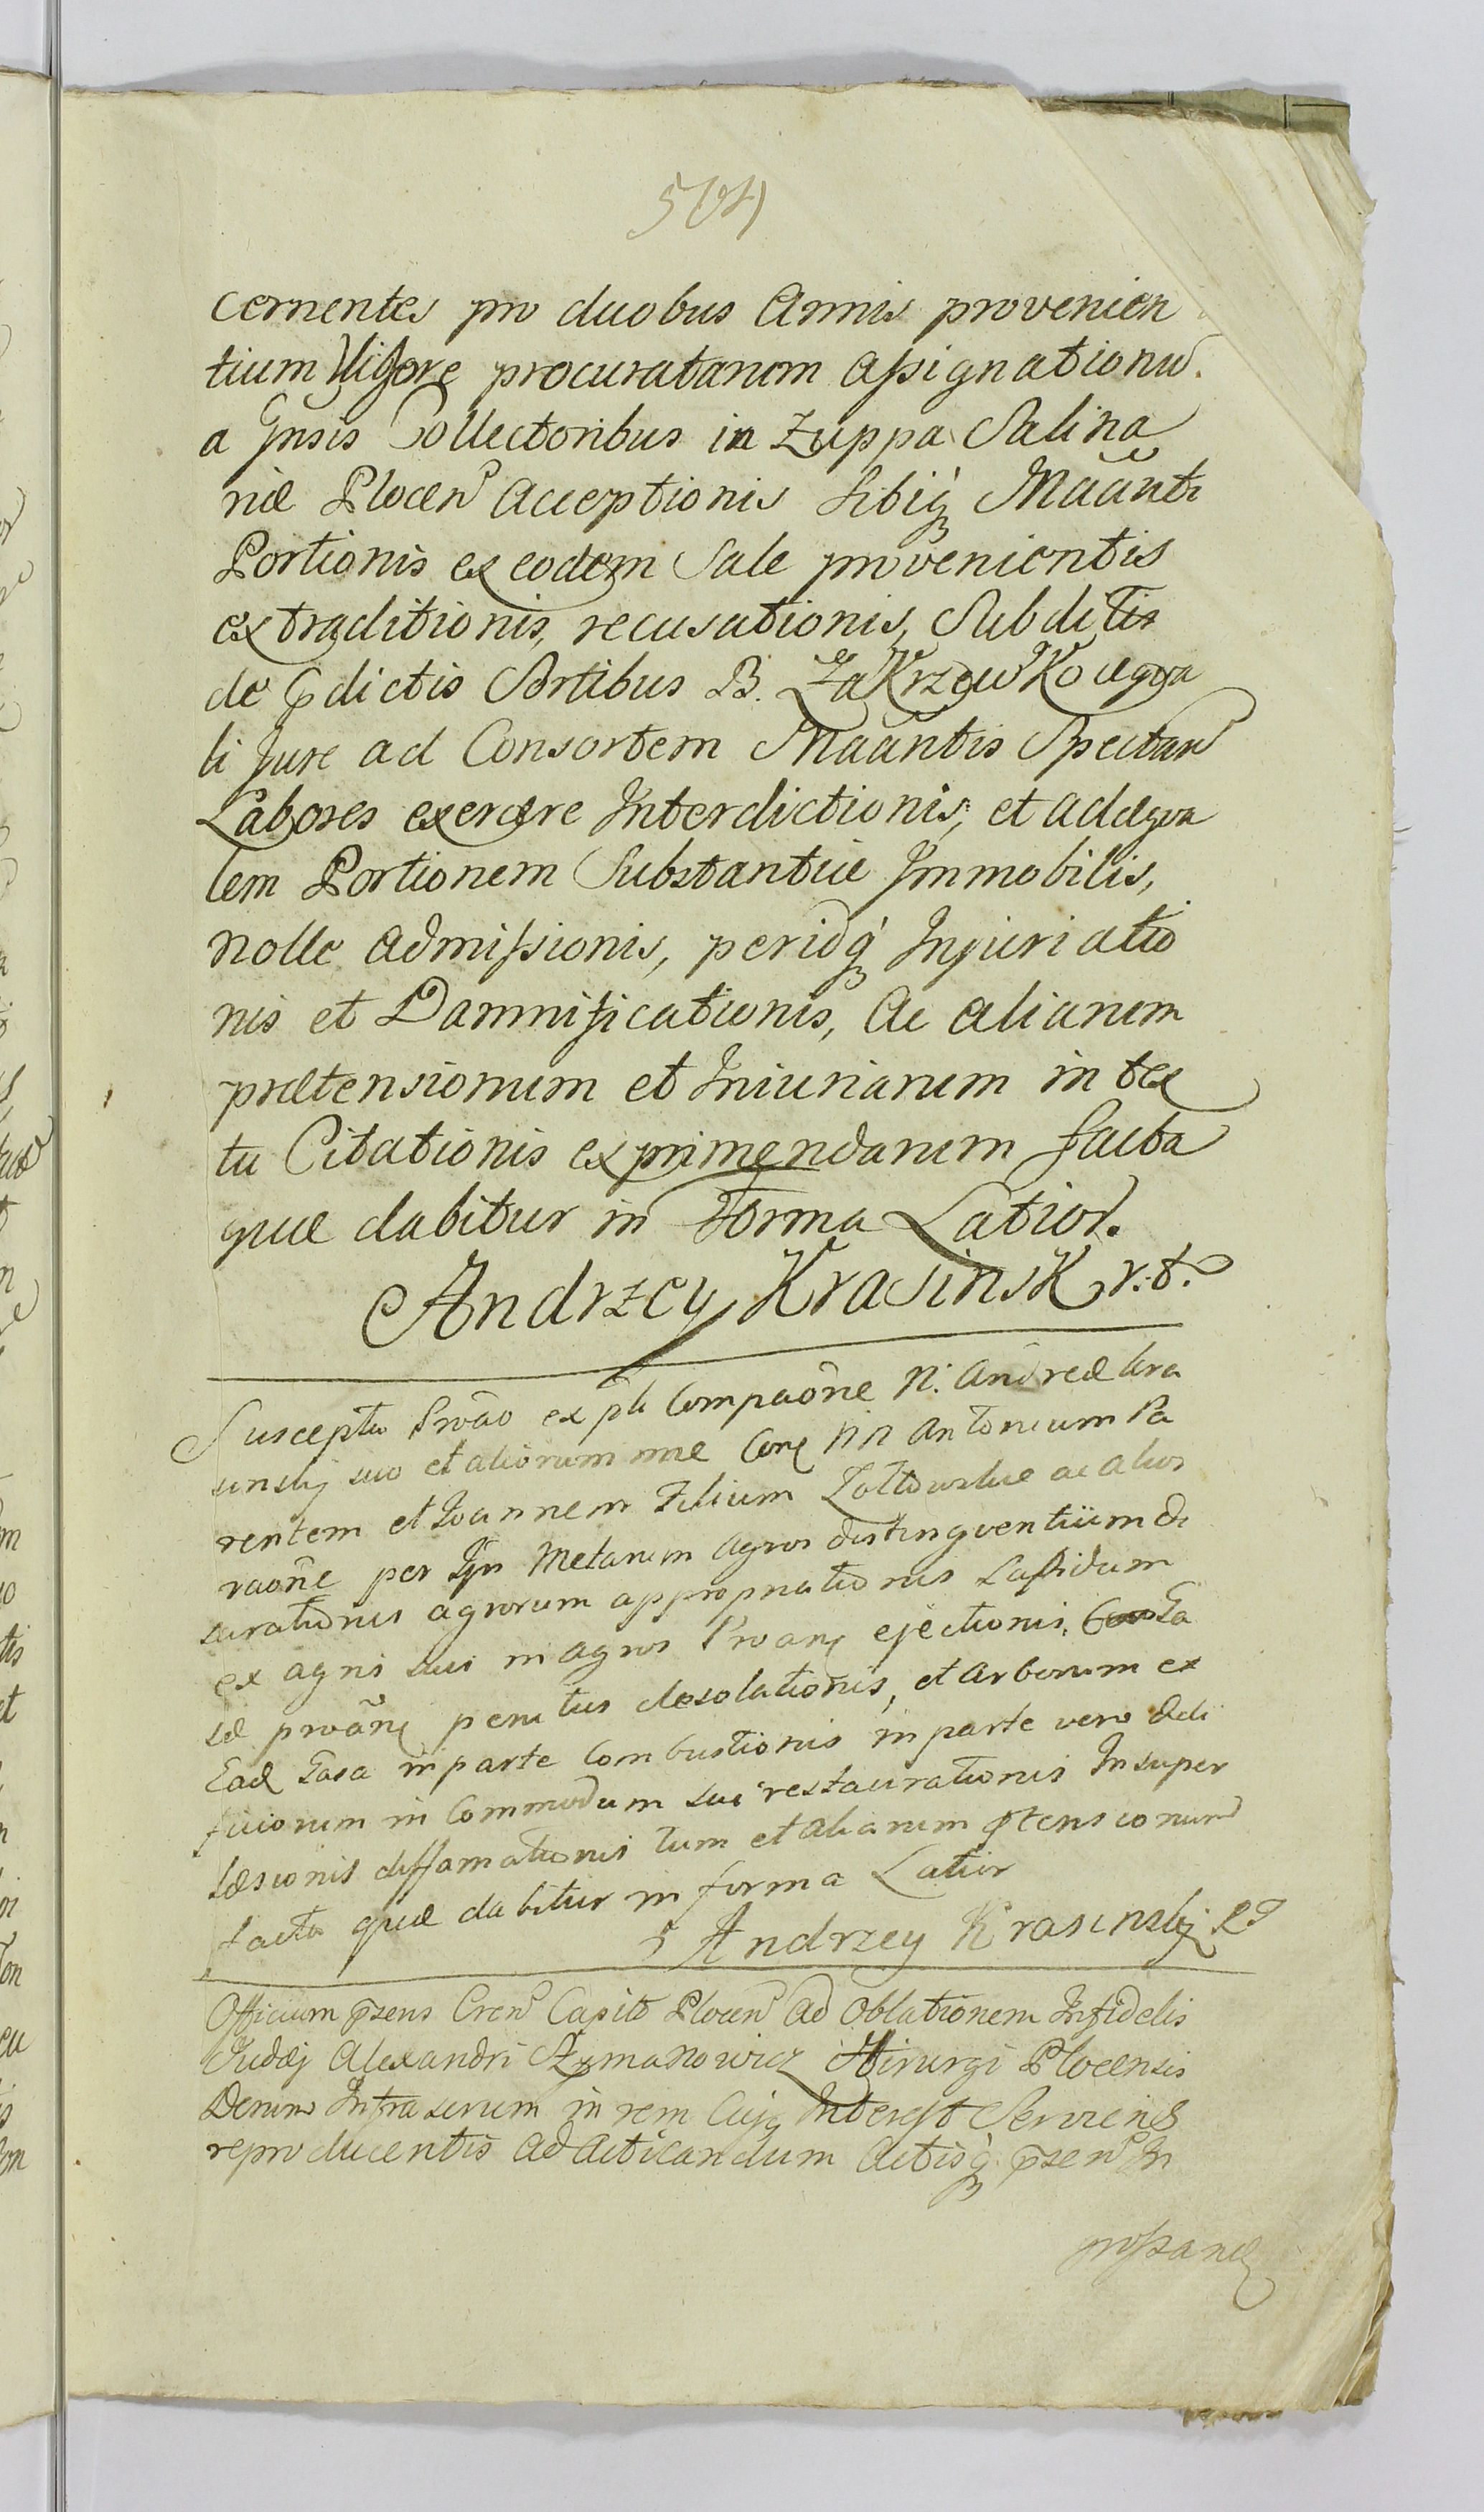 cernentes pro duobus Annis provenien
tium Vigore procuratarum Assignationũ.
a Gnsis Collectoribus in Zuppa Salina
riæ Plocen Acceptionis sibiq́ Mããnti
Portionis ex eodem Sale provenientis
extraditionis, recusationis, Subditis
de dictis Sortibus B. Zakrzewko æqva
li Jure ad Consortem Mããntis Spectan
Labores exercere Interdictionis, et adæqva
lem Portionem Substantiæ Immobilis,
nolle Admissionis, peridq́ Injuriatio
nis et Damnificationis, Ac aliarum
prætensionum et Iniuriarum in tex
tu Citationis exprimendarum facta
quæ dabitur in Forma Latior.
Andrzey Krasinski r.t.
Suscepta Protão ex pte Compaõne N. Andreæ Kra
sinskij suo et aliorum nne Cont NN Antonium Pa
rentem et Joannem Filium Zottowskie ac alios
raõne per Metarum Agros distingventium
surationis agrorum appropriationis Lapidum
ex agris suis in agros ejectionis,
penitus desolationis, et Arborum ex
Ead in parte Combustionis in parte vero
ficiorum in Commodum sui restaurationis Insuper
læsionis diffamationis tum et aliarum ptensionum
facta quæ dabitur in forma Latior
Andrzey Krasinskij
Officium p̃sens Cren Capit Plocen Ad Oblationem Infidelis
Judæj Alexandri Szymanowicz Hirurgi Plocensis
Infrascrum in rem Cujq Interest Serviens
reproducentis ad Acticandum Actisq́ p̃sen In